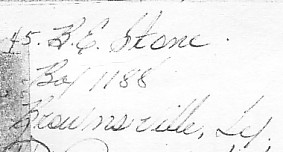 45. H. E. Stone.
Box 1188
Brownsville, Ky.